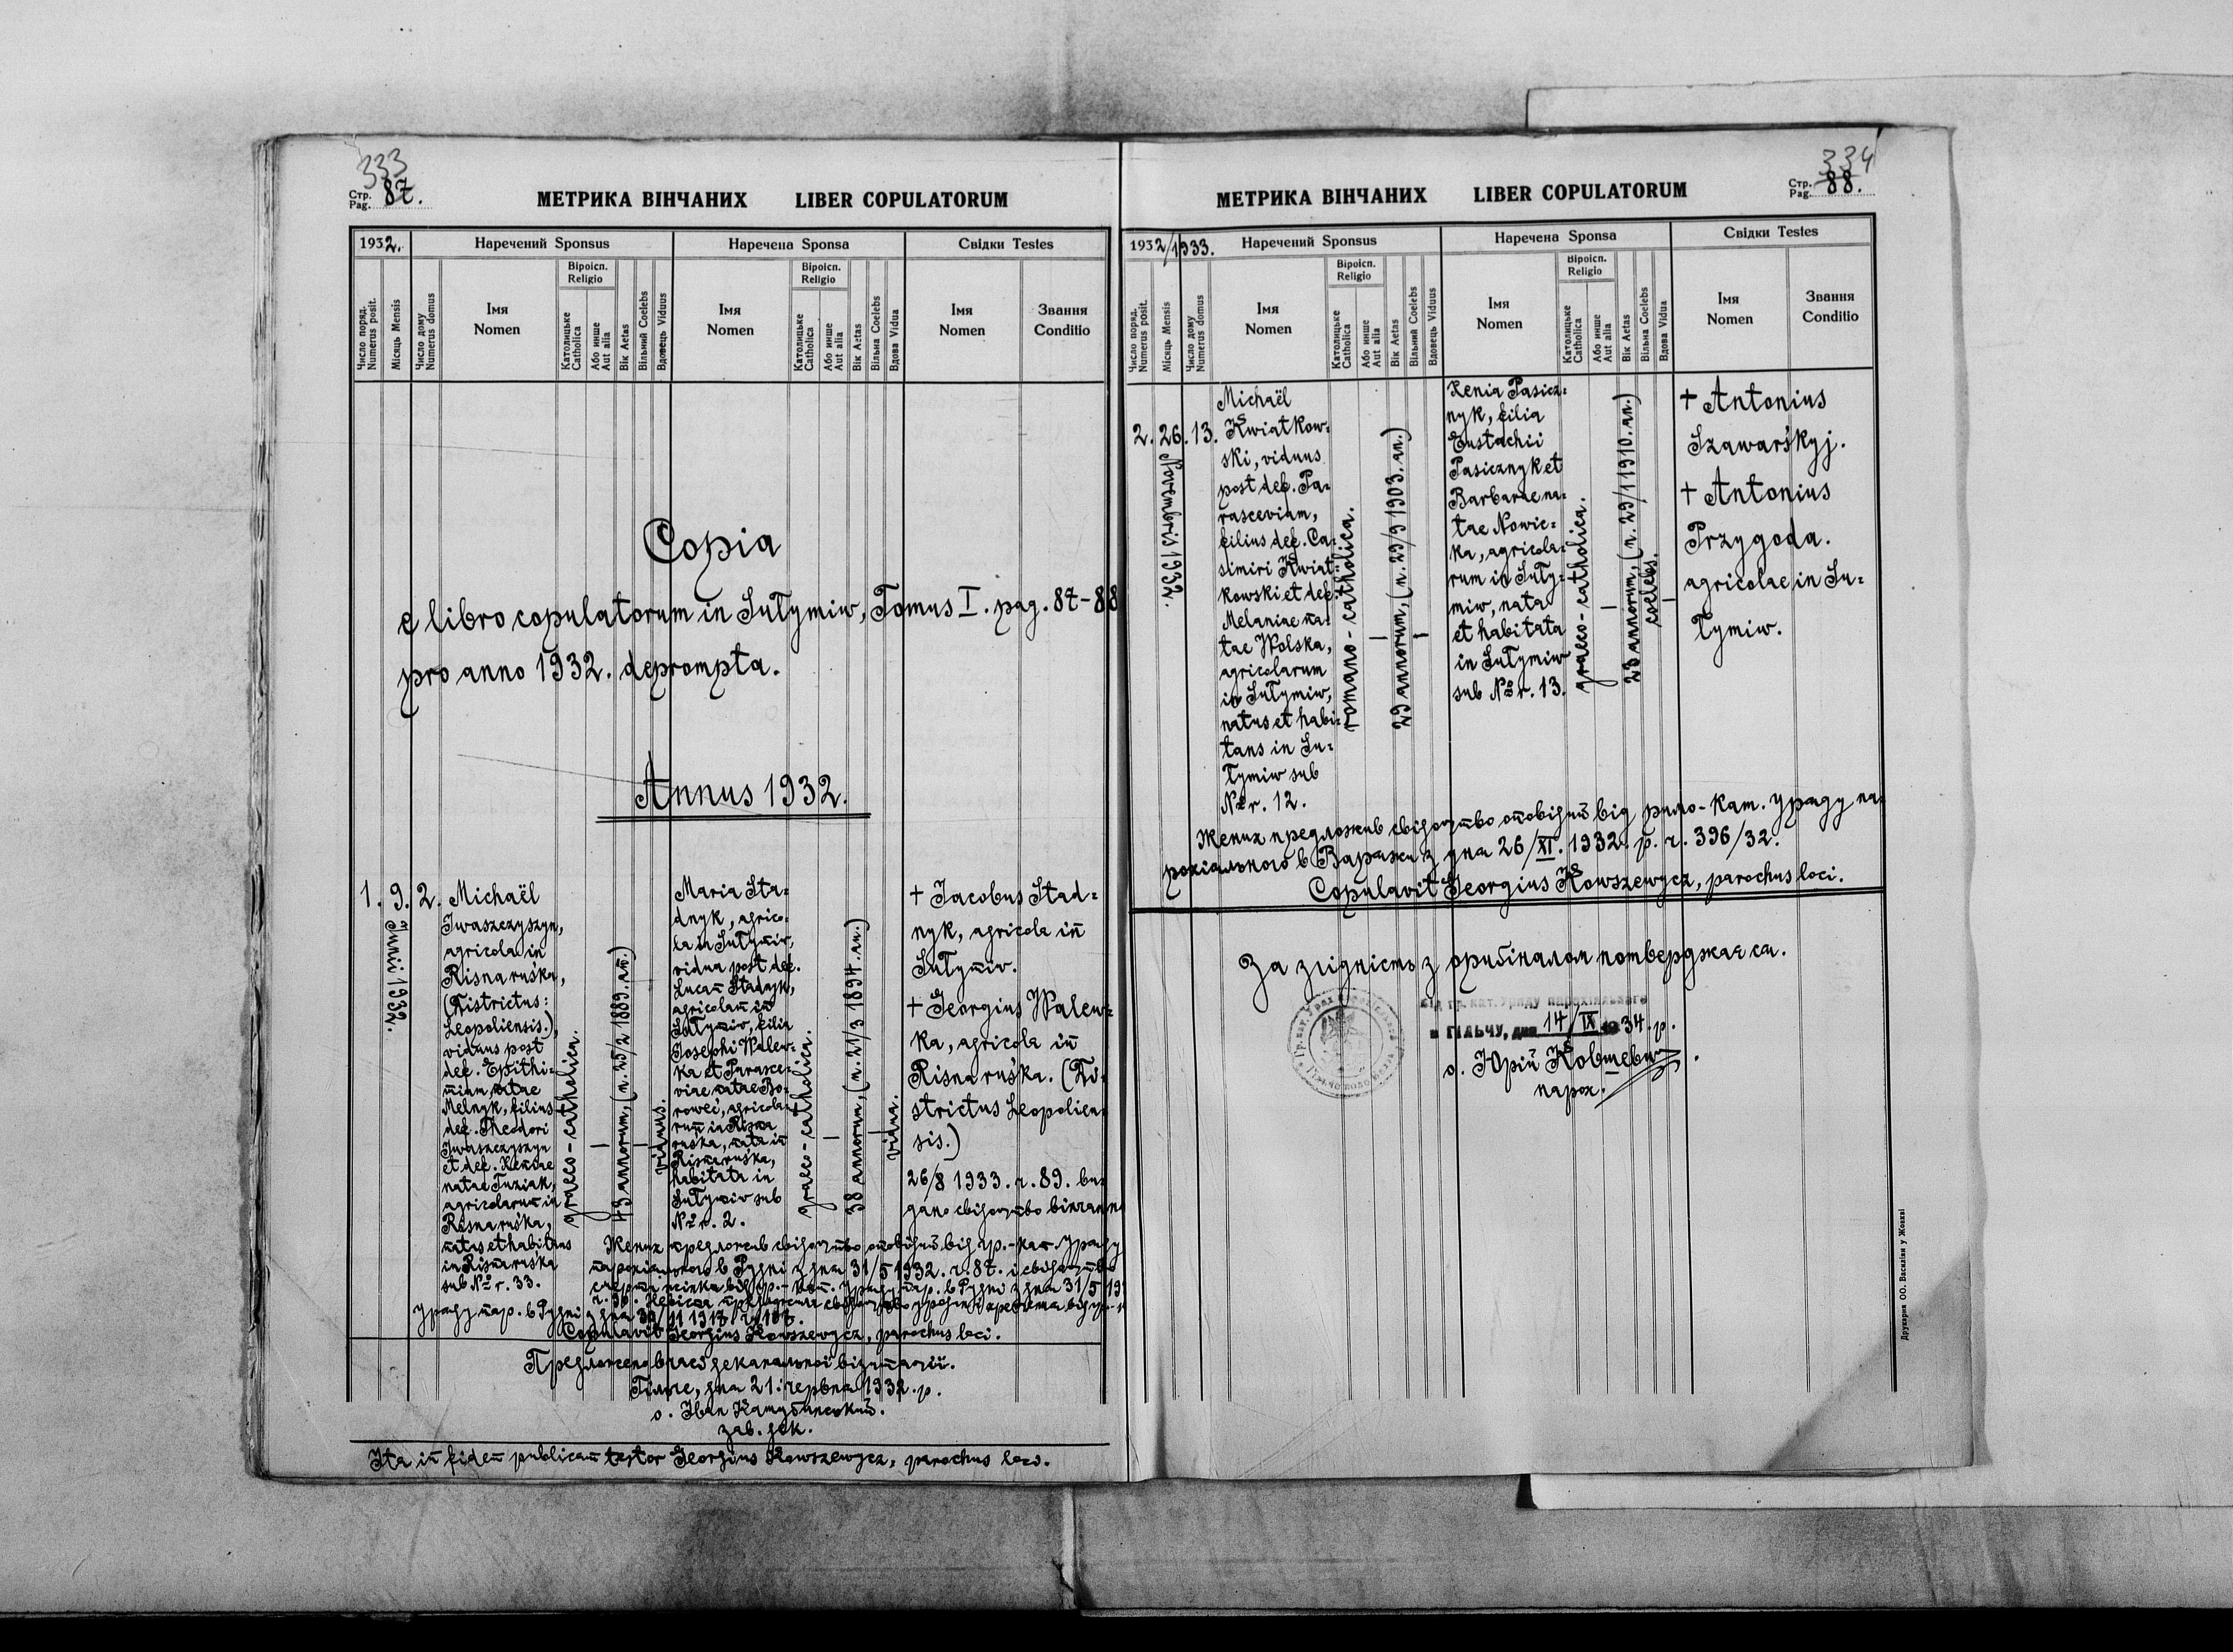 333
Стр. Pag. 87.
МЕТРИКА ВІНЧАНИХ LIBER COPULATORUM
1932.
Наречений Sponsus
Наречена Sponsa
Свідки Testes
Число поряд. Numerus posit.
Місяць Mensis
Число дому Numerus domus
Імя Nomen
Віроісп. Religio
Католицьке Catholica
Або инше Aut alia
Вік Aetas
Вільний Coelebs
Вдовець Viduus
Імя Nomen
Віроісп. Religio
Католицьке Catholica
Або инше Aut alia
Вік Aetas
Вільна Coelebs
Вдова Vidua
Імя Nomen
Звання Conditio
Copia
e libro copulatorum in Sułymiw, Tomus I. pag. 87-88
pro anno 1932. deprompta.
Annus 1932.
1.
9.
Junii 1932.
2.
Michaël
Iwaszczyszyn,
agricola in
Risna ruśka,
(Districtus:
Leopoliensis.),
viduus post
def. Epithi-
miam natae
Melnyk, filius
def. Theodori
Iwaszczyszyn
et def. Xeniae
natae Tuziak,
agricolarum in
Risna ruśka,
natus et habitans
in Risna ruśka
sub № r. 33.
graeco-catholica.
43 annorum, (n. 25/2 1889. an.)
viduus.
Maria Sta-
dnyk, agrico-
la in Sułymiw,
vidua post def.
Lucam Stadnyk,
agricolam in
Sułymiw, filia
Josephi Walew-
ka et Parasce-
viae natae Bo-
roweć, agricola-
rum in Risna
ruśka, nata in
Risna ruśka,
habitata in
Sułymiw sub
№ r. 2.
graeco-catholica.
38 annorum, (n. 21/3 1894. an.)
vidua.
+ Jacobus Stad-
nyk, agricola in
Sułymiw.
+ Georgius Walew-
ka, agricola in
Risna ruśka. (Di-
strictus Leopolien-
sis.)
26/8 1933. ч. 89. ви-
дано свідоцтво вінчання
Жених предложив свідоцтво оповідий від гр.-кат. уряду
парохіяльного в Рудні з дня 31/5 1932. ч. 87. і свідоцтво
смерти жінки від гр.-кат. уряду пар. в Рудні з дня 31/5 19
уряду пар. в Рудні з дня 30/11 1917. ч. 107.
Copulavit Georgius Kowszewycz, parochus loci.
Предложено в часі деканальної візитації.
Гільче, дня 21. червня 1932. р.
о. Іван
зав. дек.
Ita in fidem publicam testor Georgius Kowszewycz, parochus loci.
334
Стр. Pag. 88.
МЕТРИКА ВІНЧАНИХ LIBER COPULATORUM
1932/1933.
Наречений Sponsus
Наречена Sponsa
Свідки Testes
Число поряд. Numerus posit.
Місяць Mensis
Число дому Numerus domus
Імя Nomen
Віроісп. Religio
Католицьке Catholica
Або инше Aut alia
Вік Aetas
Вільний Coelebs
Вдовець Viduus
Імя Nomen
Віроісп. Religio
Католицьке Catholica
Або инше Aut alia
Вік Aetas
Вільна Coelebs
Вдова Vidua
Імя Nomen
Звання Conditio
2.
26.
Novembris 1932.
13.
Michaël
Kwiatkow-
ski, viduus
post def. Pa-
rasceviam,
filius def. Ca-
simiri Kwiat-
kowski et def.
Melaniae na-
tae Wolska,
agricolarum
in Sułymiw,
natus et habi-
tans in Su-
łymiw sub
№ r. 12.
romano-catholica.
29 annorum, (n. 29/9 1903. an.)
Xenia Pasicz-
nyk, filia
Eustachii
Pasicznyk et
Barbarae na-
tae Nowic-
ka, agricola-
rum in Suły-
miw, nata
et habitata
in Sułymiw
sub № r. 13.
graeco-catholica.
23 annorum, (n. 29/1 1910. an.)
coelebs.
+ Antonius
Szawarśkyj.
+ Antonius
Przygoda.
agricolae in Su-
łymiw.
Жених предложив свідоцтво оповідий від римо-кат. уряду па-
рохіяльного в Варяжи з дня 26/XI. 1932. р. ч. 396/32.
Copulavit Georgius Kowszewycz, parochus loci.
За згідність з оригіналом потверджається.
Від гр. кат. Уряду парохіяльного
в ГІЛЬЧУ, дня 14/IX 1934. р.
о. Юрій Ковшевич.
парох.
Друкарня ОО. Василіян у Жовкві